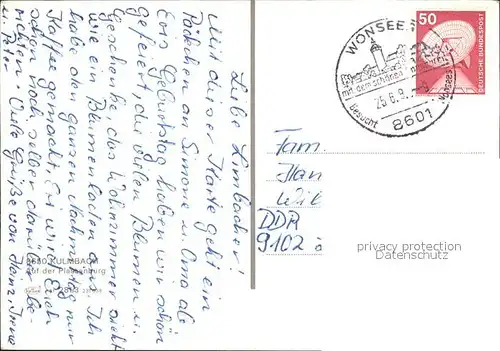 Liebe Limbacher!
Mit dieser Karte geht ein
Päckchen an Simone u. Oma ab.
Evis Geburtstag haben wir schön
gefeiert, die vielen Blumen u.
Geschenke, das Wohnzimmer sieht
wie ein Blumenladen aus. Ich
habe den ganzen Nachmittag nur
Kaffee gemacht, Evi wird Euch
schon noch selber darüber be-
richten. Viele Grüße von Heinz, Irene
u. Peter
8650 KULMBACH
Auf der Plassenburg
WONSEES
mit dem schönen
Besucht Wonsees
25.6.8
8601
50
DEUTSCHE BUNDESPOST
Fam.
DDR
9102
privacy protection
Datenschutz